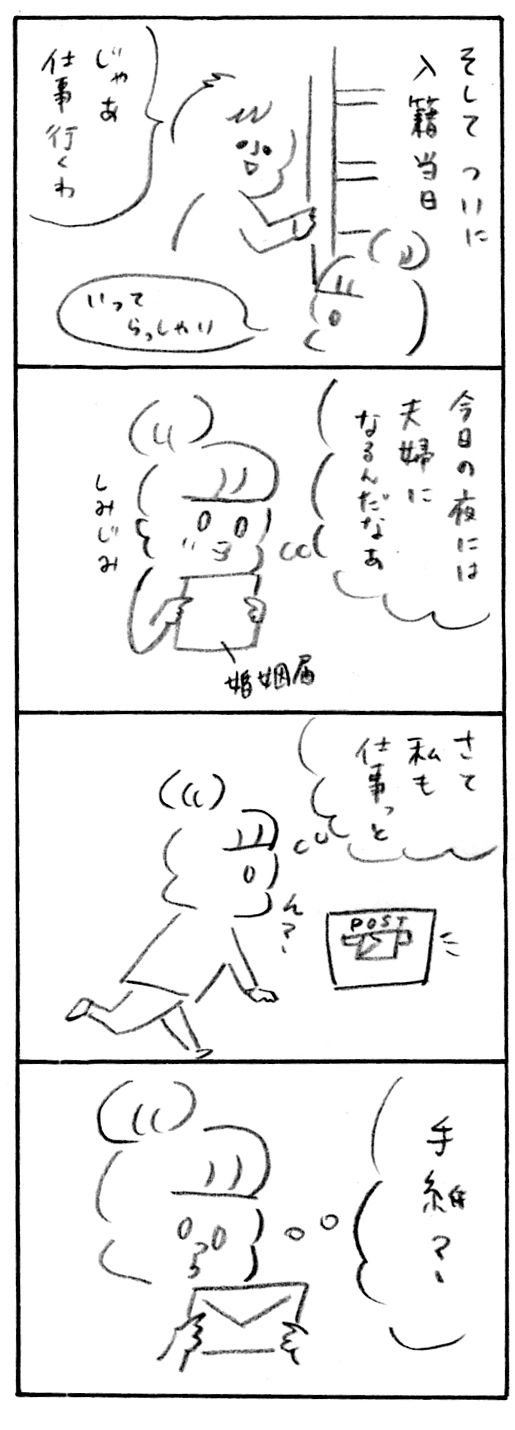 そして ついに
入籍当日
じゃあ
仕事行くわ
いって
らっしゃい
今日の夜には
夫婦に
なるんだなあ
しみじみ
婚姻届
さて
私も
仕事っと
ん?
POST
手紙?